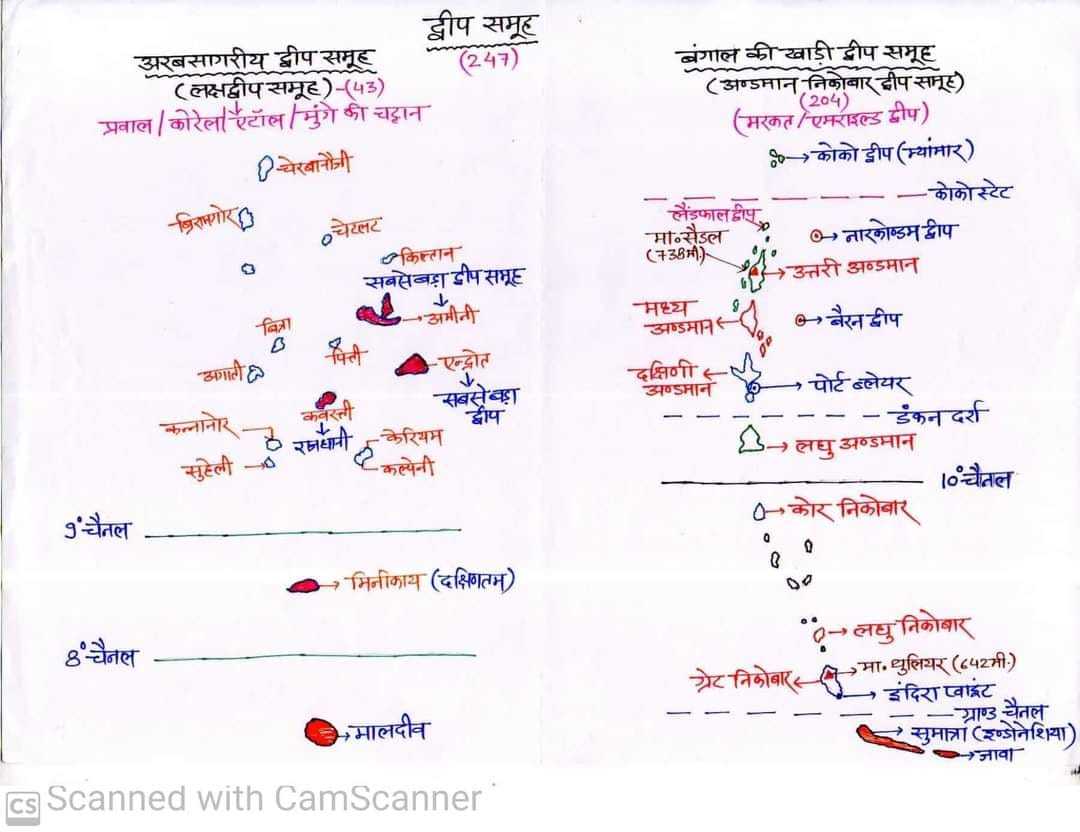 द्वीप समूह
(247)
अरबसागरीय द्वीप समूह
(लक्षद्वीप समूह)-(43)
प्रवाल/कोरेल/एटॉल/मुंगे की चट्टान
चेरबानीनी
चेटलट
किल्तान
सबसे बड़ा द्वीप समूह
अमीनी
बित्रा
पिली
अगाती
एन्द्रोत
सबसे बड़ा
द्वीप
कवरत्ती
राजधानी
कन्नानोर
सुहेली
केरियम
कल्पेनी
9° चैनल
मिनीकाय (दक्षिणतम)
8° चैनल
मालदीव
बंगाल की खाड़ी द्वीप समूह
(अण्डमान निकोबार द्वीप समूह)
(204)
(मरकत/एमराइल्ड द्वीप)
कोको द्वीप (म्यांमार)
कोको स्टेट
लैंडफाल द्वीप
मा॰ सैडल
(738मी.)
नारकोण्डम द्वीप
उत्तरी अण्डमान
मध्य
अण्डमान
बैरन द्वीप
दक्षिणी
अण्डमान
पोर्ट ब्लेयर
डंकन दर्रा
लघु अण्डमान
10° चैनल
कोर निकोबार
लघु निकोबार
ग्रेट निकोबार
मा॰ थुलियर (642मी.)
इंदिरा प्वाइंट
ग्राण्ड चैनल
सुमात्रा (इण्डोनेशिया)
जावा
CS Scanned with CamScanner